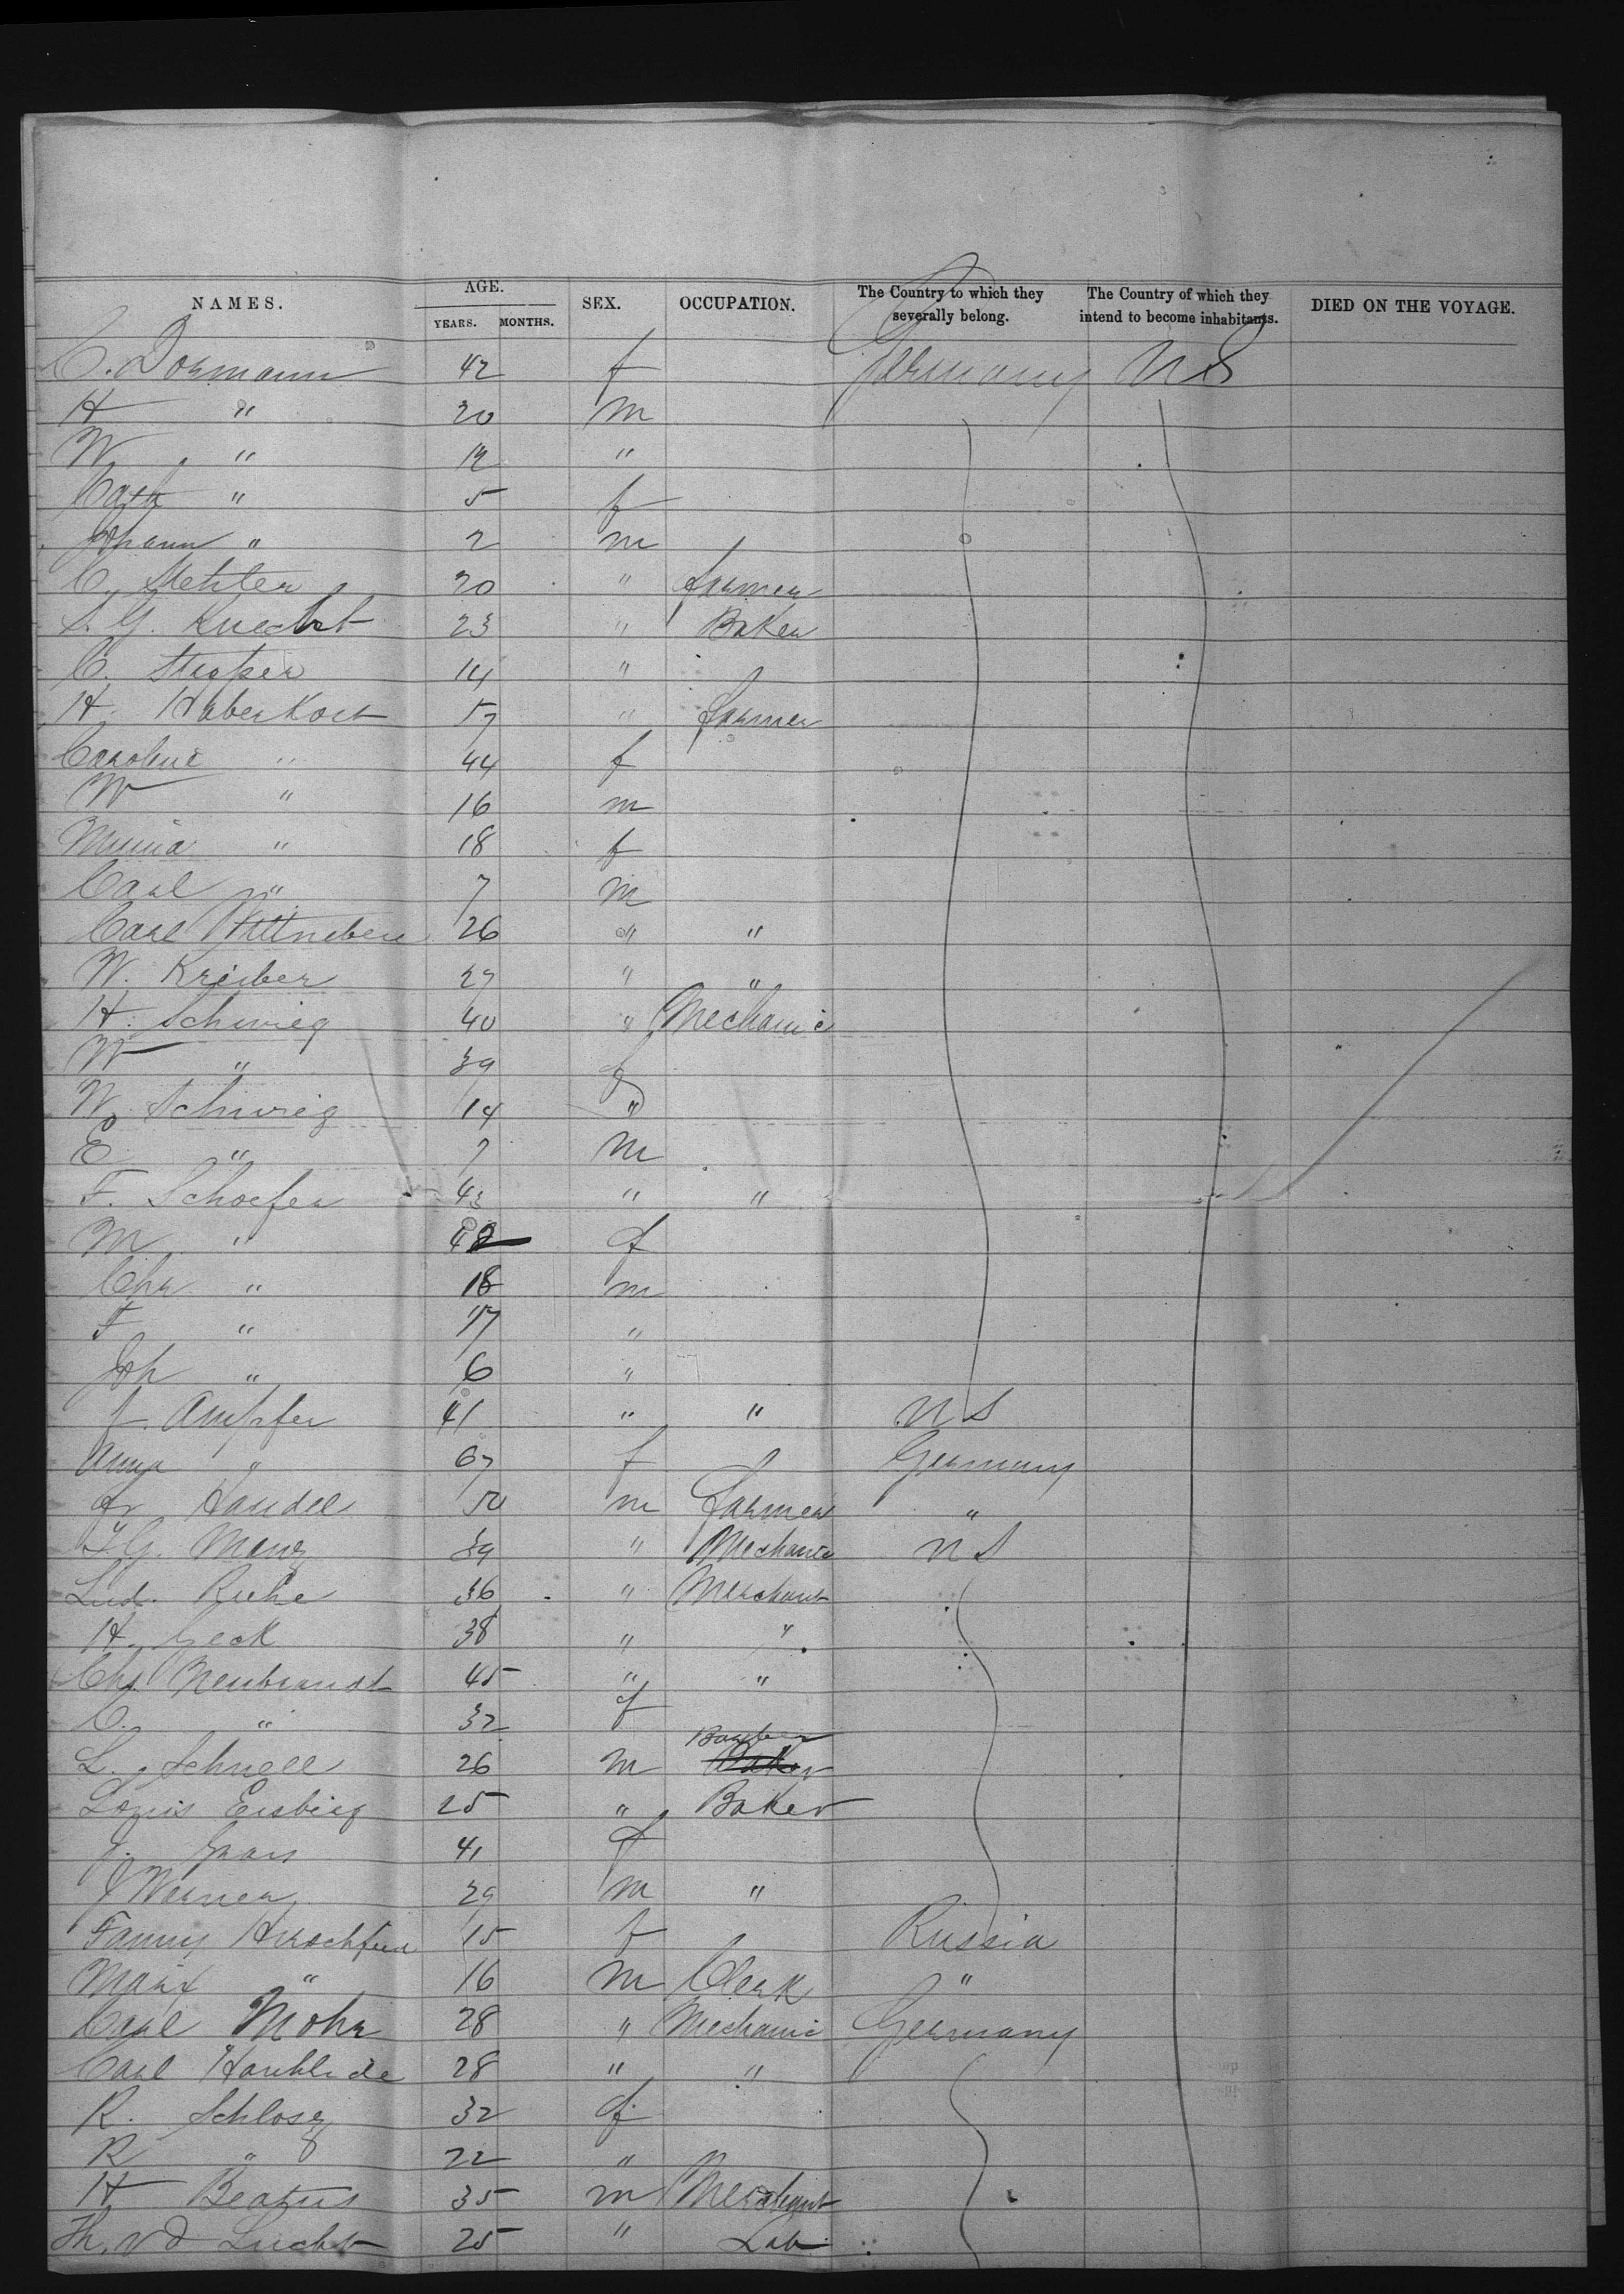 NAMES. AGE. SEX. OCCUPATION. The Country to which they severally belong. The Country of which they intend to become inhabitants. DIED ON THE VOYAGE.
YEARS. MONTHS.
C. Dormann 42 f Germany U S
H " 20 m
W " 12 "
Cath " 5 f
Johann " 2 m
C. Mehler 20 " farmer
S. G. Knecht 23 " Baker
C. 14 "
H. Haberkost 57 " farmer
Caroline " 44 f
W " 16 m
Minna " 18 f
Carl " 7 m
Carl 26 " "
W. Kreiber 27 " "
H. Schwieg 40 " Mechanic
W " 39 f
W. Schwieg 14 "
E " 7 m
F. Schoefer 43 " "
M " f
Chr " 18 m
F " 17 "
Joh " 6 "
J. Ampfer 41 " " U S
Anna " 67 f Germany
Fr Handel 50 m farmer "
F G. Menz 39 " Mechanic U S
Lud. Ruhe 36 " Merchant
H. Geck 38 " "
Chs. Neubrandt 45 " "
C. " 32 f
L. Schnell 26 m Barber
Louis Eisbieg 25 " Baker
J. 41 f
J Werner 29 m "
Fanny 15 f Russia
Marx " 16 m Clerk "
Carl Mohr 28 " Mechanic Germany
Carl 28 " "
R. Schlosz 32 f
R " 22 "
H Beatus 35 m Merchant
Th. v d Lucht 25 " Lab